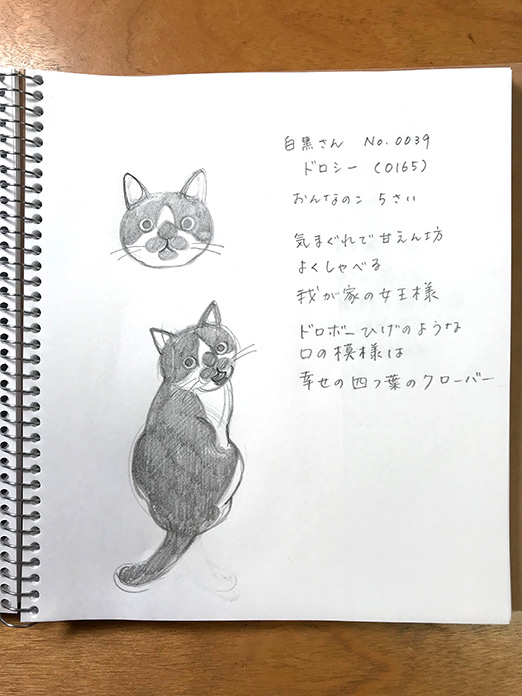 白黒さん No.0039
ドロシー (0165)
おんなのこ 5さい
気まぐれで甘えん坊
よくしゃべる
我が家の女王様
ドロボーひげのような
口の模様は
幸せの四つ葉のクローバー